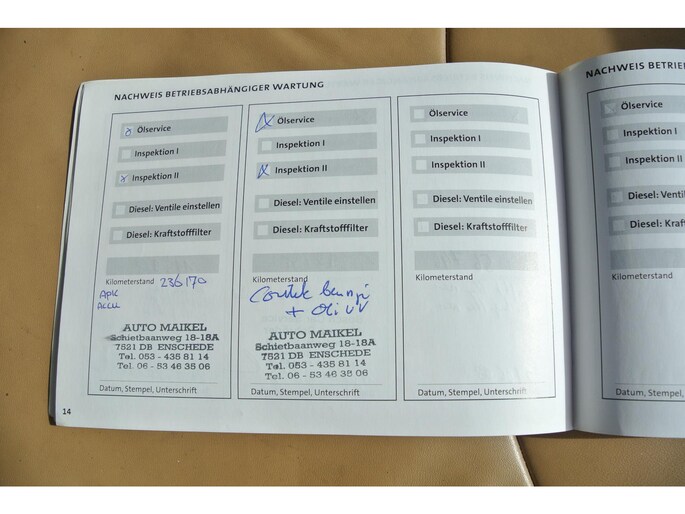 NACHWEIS BETRIEBSABHÄNGIGER WARTUNG
Ölservice
Inspektion I
Inspektion II
Diesel: Ventile einstellen
Diesel: Kraftstofffilter
Kilometerstand 236170
APK
ACCU
AUTO MAIKEL
Schietbaanweg 18-18A
7521 DB ENSCHEDE
Tel. 053 - 435 81 14
Tel. 06 - 53 46 35 06
Datum, Stempel, Unterschrift
Ölservice
Inspektion I
Inspektion II
Diesel: Ventile einstellen
Diesel: Kraftstofffilter
Kilometerstand
AUTO MAIKEL
Schietbaanweg 18-18A
7521 DB ENSCHEDE
Tel. 053 - 435 81 14
Tel. 06 - 53 46 35 06
Datum, Stempel, Unterschrift
Ölservice
Inspektion I
Inspektion II
Diesel: Ventile einstellen
Diesel: Kraftstofffilter
Kilometerstand
Datum, Stempel, Unterschrift
14
NACHWEIS BETRIE
Ölservice
Inspektion I
Inspektion II
Diesel: Ve
Diesel: Kra
Kilometerstand
Datum, Stempel, U